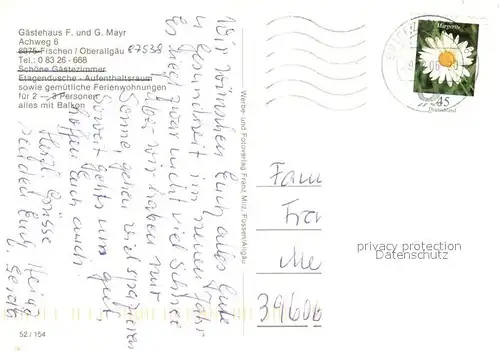 Gästehaus F. und G. Mayr
Achweg 6
8975 Fischen / Oberallgäu
87538
Tel.: 0 83 26 - 668
Schöne Gästezimmer
Etagendusche - Aufenthaltsraum
sowie gemütliche Ferienwohnungen
für 2 — 3 Personen
alles mit Balkon
Wir wünschen Euch alles Gute
u. Gesundheit im neuen Jahr
Es liegt zwar nicht viel Schnee
aber wir haben nur
Sonne, gehen viel spazieren
Soweit gehts uns gut
hoffen Euch auch.
Herzl. Grüsse
senden Euch Heinz
u. Gerda
52 / 154
Werbe- und Fotoverlag Franz Milz, Füssen/Allgäu
Margerite
45
Deutschland
Fam
Me
39606
privacy protection
Datenschutz